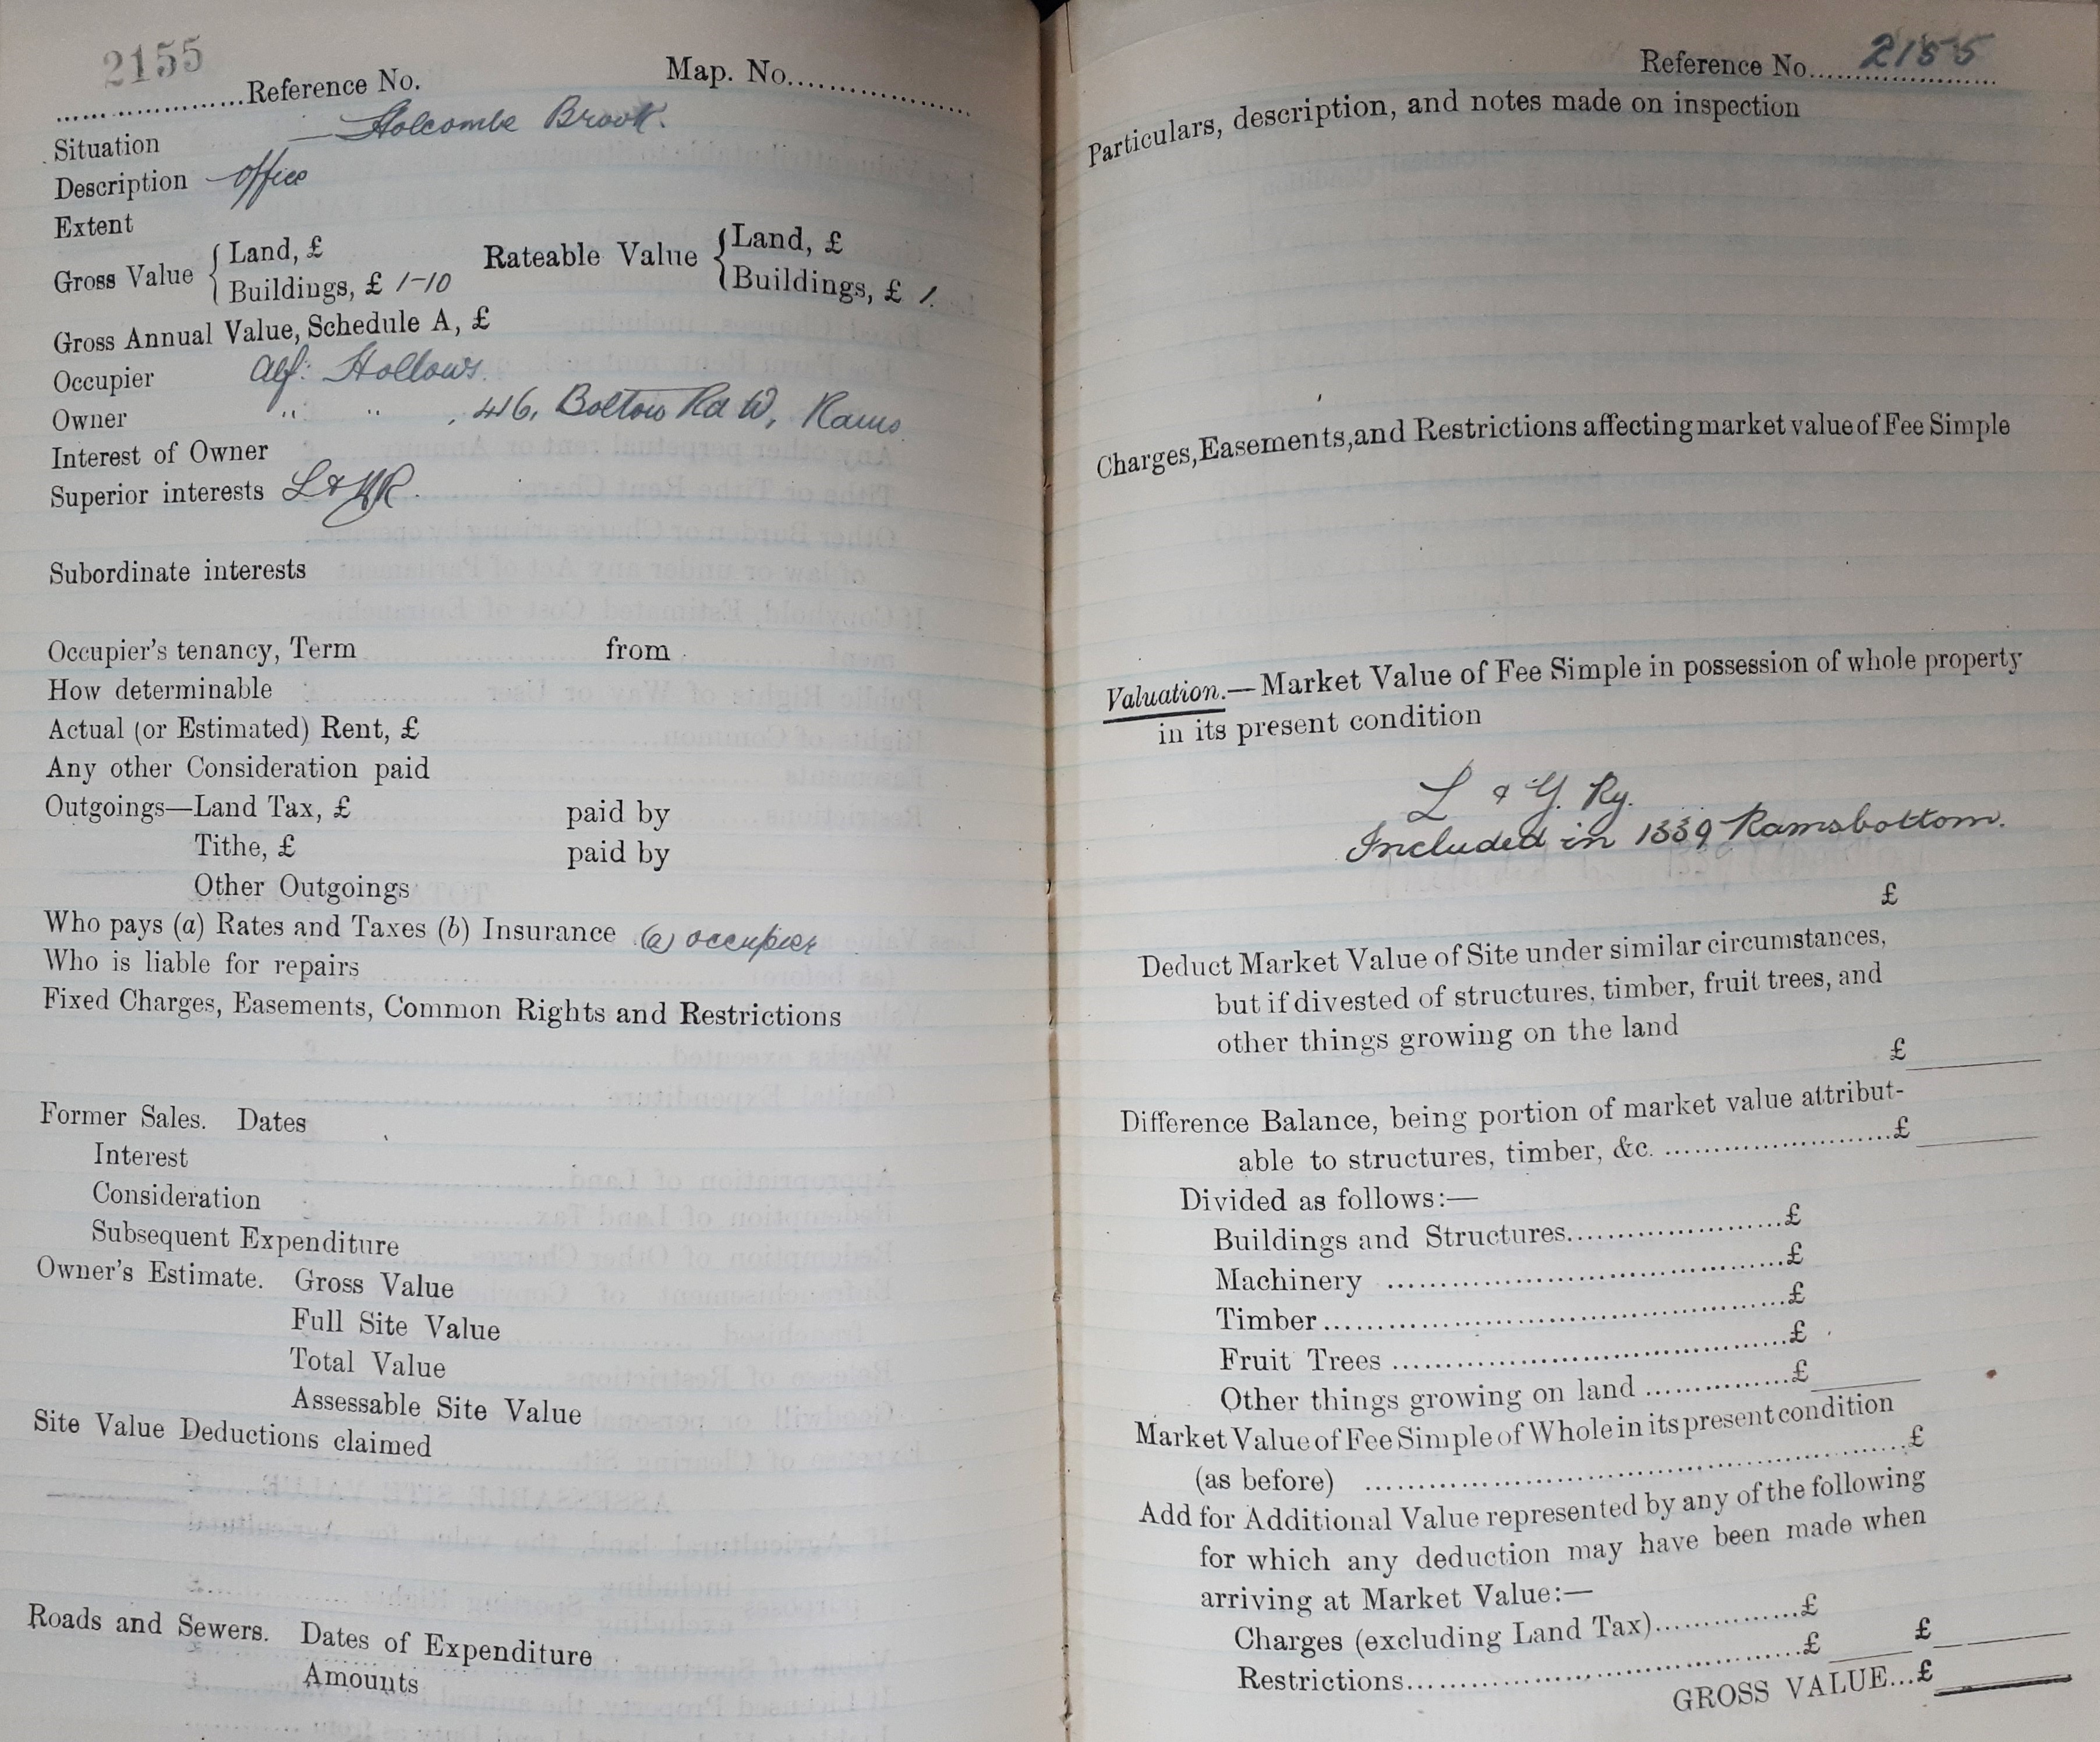 2155
..................Reference No. Map. No...................
Situation Holcombe Brook.
Description office
Extent
Gross Value { Land, £
Buildings, £ 1-10
Rateable Value { Land, £
Buildings, £ 1.
Gross Annual Value, Schedule A, £
Occupier Alf: Hollows.
Owner " " , 416, Bolton Rd W, Rams.
Interest of Owner
Superior interests L & YR.
Subordinate interests
Occupier's tenancy, Term from
How determinable
Actual (or Estimated) Rent, £
Any other Consideration paid
Outgoings—Land Tax, £ paid by
Tithe, £ paid by
Other Outgoings
Who pays (a) Rates and Taxes (b) Insurance (a) occupier
Who is liable for repairs
Fixed Charges, Easements, Common Rights and Restrictions
Former Sales. Dates
Interest
Consideration
Subsequent Expenditure
Owner's Estimate. Gross Value
Full Site Value
Total Value
Assessable Site Value
Site Value Deductions claimed
Roads and Sewers. Dates of Expenditure
Amounts
Reference No. 2155
Particulars, description, and notes made on inspection
Charges, Easements, and Restrictions affecting market value of Fee Simple
Valuation.—Market Value of Fee Simple in possession of whole property
in its present condition
L & Y. Ry.
Included in 1339 Ramsbottom.
£
Deduct Market Value of Site under similar circumstances,
but if divested of structures, timber, fruit trees, and
other things growing on the land
£
Difference Balance, being portion of market value attribut-
able to structures, timber, &c. ........................£
Divided as follows:—
Buildings and Structures........................£
Machinery ........................£
Timber........................£
Fruit Trees ........................£
Other things growing on land ...............£
Market Value of Fee Simple of Whole in its present condition
(as before) ........................£
Add for Additional Value represented by any of the following
for which any deduction may have been made when
arriving at Market Value:—
Charges (excluding Land Tax)...............£
Restrictions........................£ £
GROSS VALUE...£